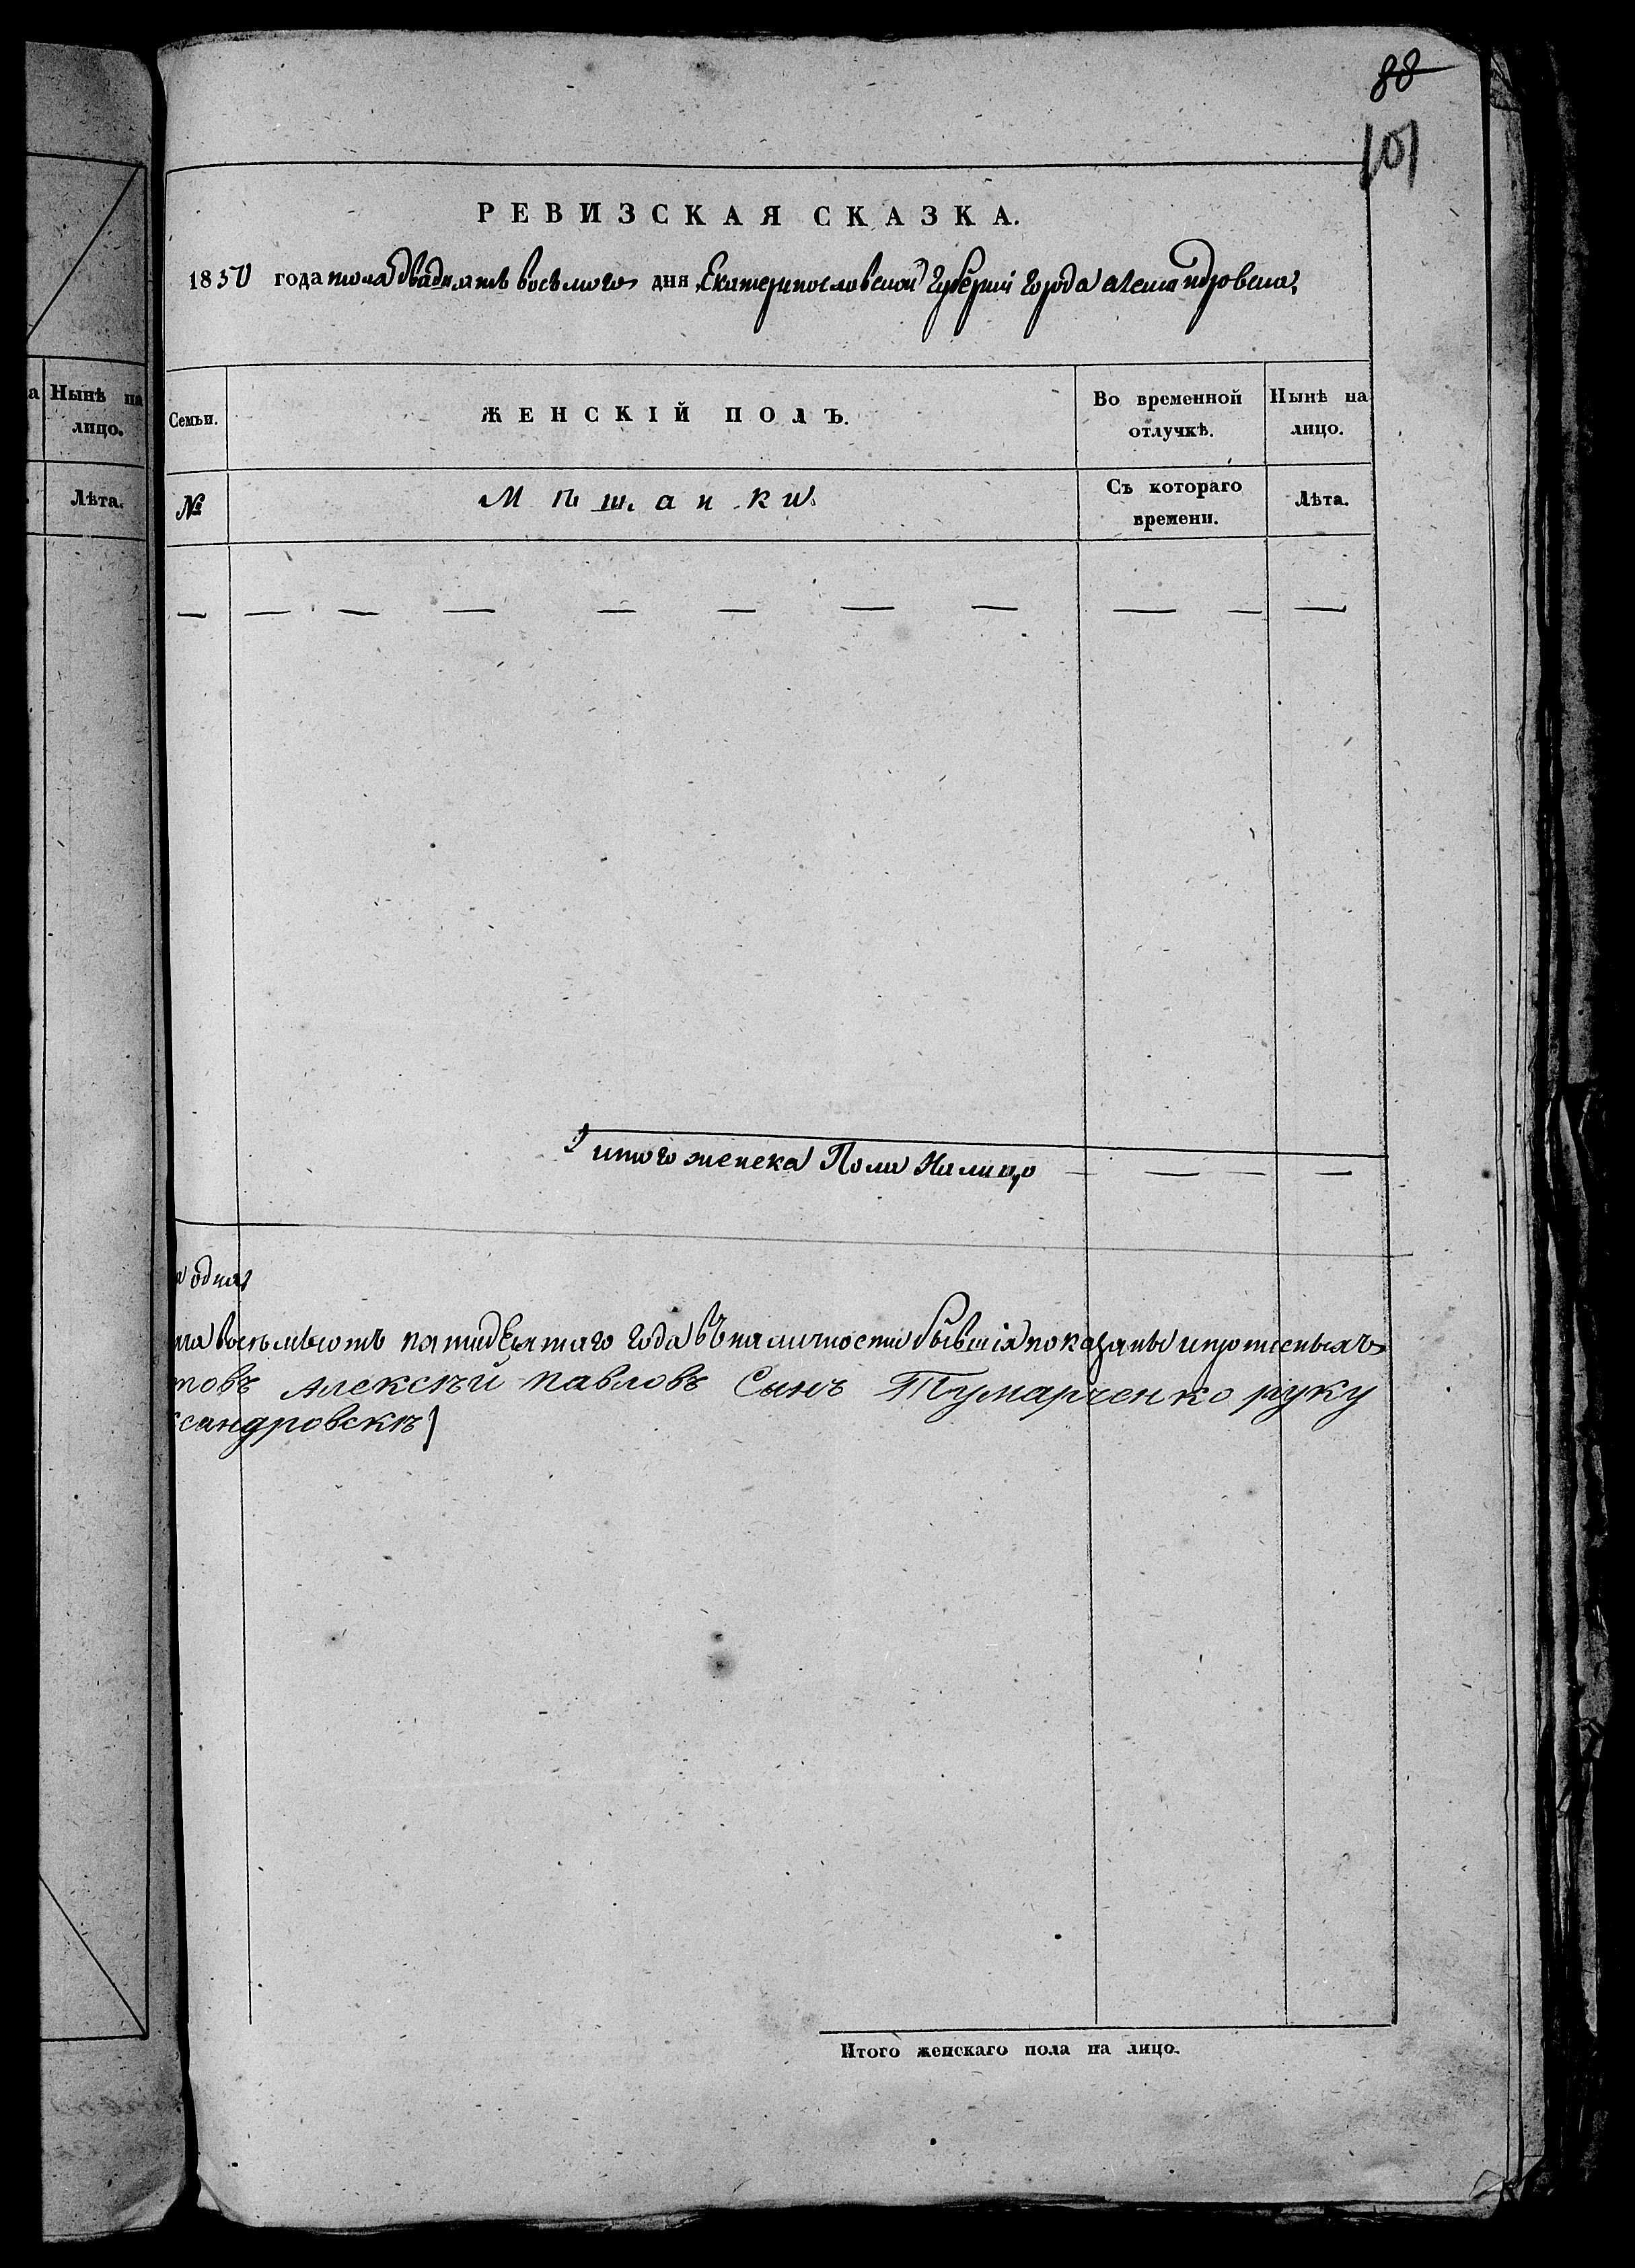 88
101
РЕВИЗСКАЯ СКАЗКА.
1850 года июля двадцать восьмого дня Екатеринославской Губерніи города александровска,
а Нынѣ на лицо.
Лѣта.
Семьи. ЖЕНСКІЙ ПОЛЪ. Во временной отлучкѣ. Нынѣ на лицо.
№ Мѣщанки Съ котораго времени. Лѣта.
— — — — — — — — — — —
итого женска Пола Налицо — — — —
одна
восемьсотъ пятидесятаго года въ наличности бывшія показаны и
товъ Алексѣй Павловъ Сынъ Тумарченко руку
ксандровскѣ
Итого женскаго пола на лицо.